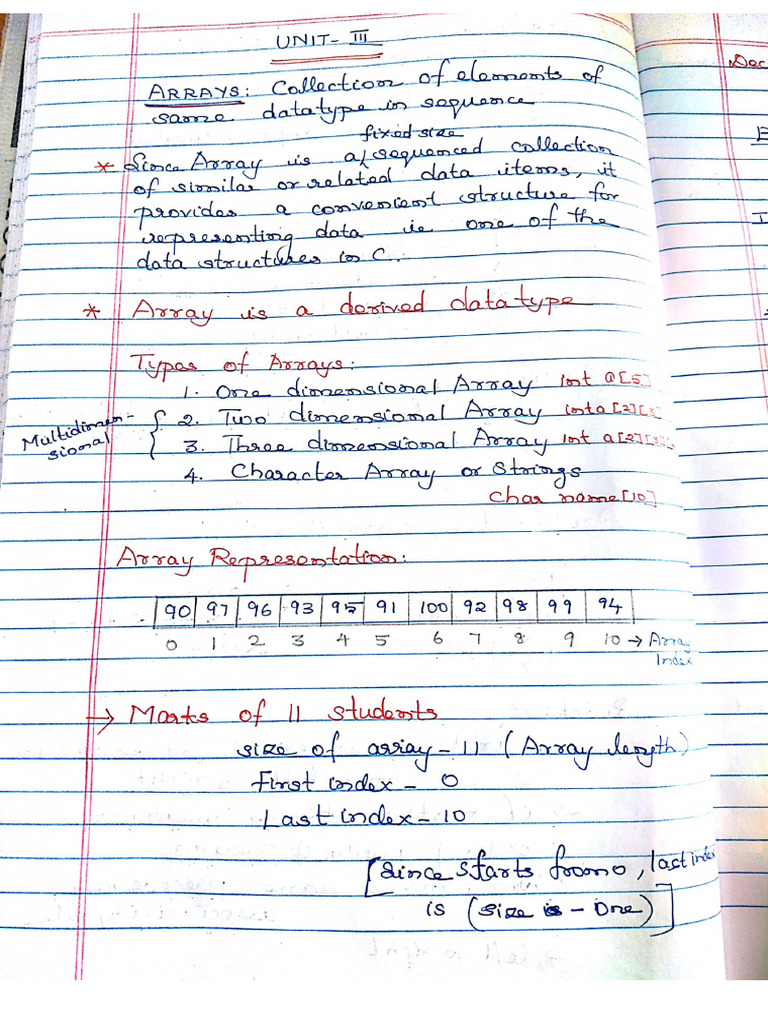 UNIT- III
ARRAYS: Collection of elements of
same datatype in sequence
fixed size
* Since Array is a/sequenced collection
of similar or related data items, it
provides a convenient structure for
representing data ie one of the
data structures in C.
* Array is a derived datatype
Types of Arrays:
1. One dimensional Array int a[5]
Multidimen-
sional
2. Two dimensional Array int a[2][
3. Three dimensional Array int a[2][
4. Character Array or Strings
char name[10]
Array Representation:
90 97 96 93 95 91 100 92 98 99 94
0 1 2 3 4 5 6 7 8 9 10 → Array
Index
→ Marks of 11 students
size of array - 11 (Array length)
First index - 0
Last index - 10
[Since starts from 0, last index
is (size - One)]
Dec